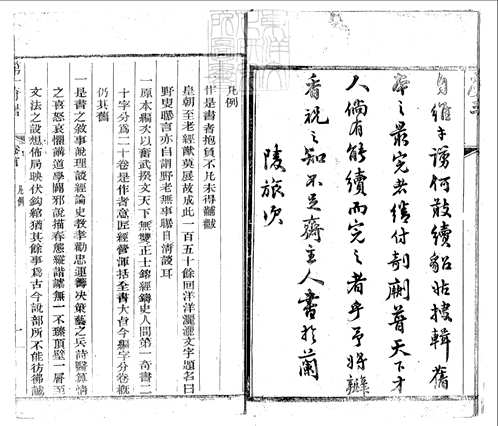 自維才譾何敢續貂姑搜輯舊
本之最完者繕付剞劂普天下才
人倘有能續而完之者乎予將瓣
香祝之知不足齋主人書於蘭
陵旅次
凡例
作是書者抱負不凡未得黼黻
皇朝至老經猷莫展故成此一百五十餘回洋洋灑灑文字題名曰
野叟曝言亦自謂野老無事曝日清談耳
一原本編次以奮武揆文天下無雙正士鎔經鑄史人間第一奇書二
十字分爲二十卷是作者意匠經營渾括全書大旨今編字分卷概
仍其舊
一是書之敘事說理談經論史教孝勸忠運籌決策藝之兵詩醫算情
之喜怒哀懼講道學闢邪說描春態縱諧謔無一不臻頂壁一層至
文法之設想佈局映伏鈎綰猶其餘事爲古今說部所不能彷彿誠
第一奇書
凡例
一